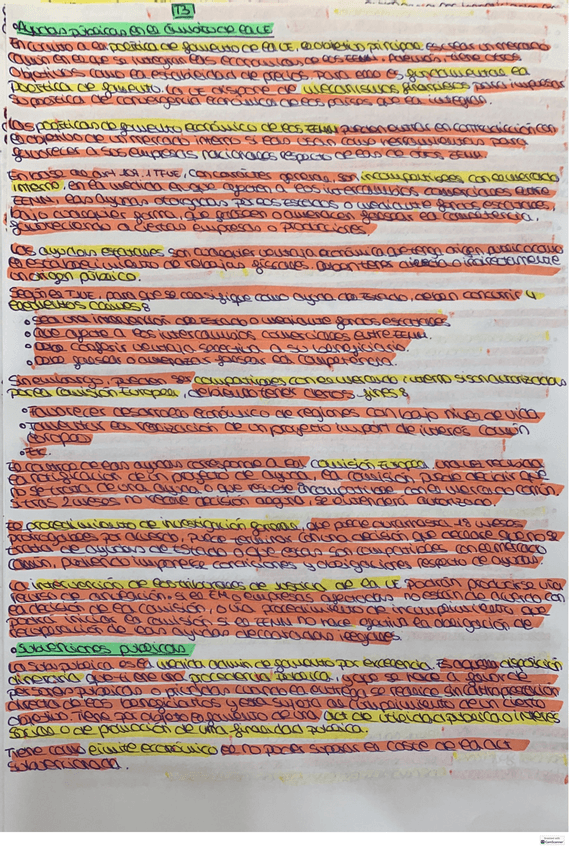 T3
• Ayudas públicas en el ámbito de la UE
En cuanto a la política de fomento de la UE, el objetivo principal es crear un mercado
común en el que se integran las economías de los EEMM. Además, tiene otros
objetivos como la estabilidad de precios. Para ello es fundamental la
política de fomento. La UE dispone de mecanismos financieros para impulsar
su política de convergencia económica de los países que la integran.
Las políticas de fomento económico de los EEMM pueden entrar en contradicción con
el objetivo de un mercado interno si las usan como instrumento para
favorecer a sus empresas nacionales respecto de las de otros EEMM.
En base al art. 107.1 TFUE, con carácter general, son incompatibles con el mercado
interno, en la medida en que afecten a los intercambios comerciales entre
EEMM, las ayudas otorgadas por los estados o mediante fondos estatales,
bajo cualquier forma, que falseen o amenacen falsear la competencia,
favoreciendo a ciertas empresas o producciones.
Las ayudas estatales son cualquier ventaja económica que tenga origen público como
un origen público.
Según el TJUE, para que se califique como ayuda de Estado, deben concurrir 4
elementos comunes:
• Sea una intervención del Estado o mediante fondos estatales.
• Que afecte a los intercambios comerciales entre EEMM.
• Debe conferir ventaja selectiva a su beneficiario.
• Debe falsear o amenazar falsear la competencia.
Sin embargo, pueden ser compatibles con el mercado interno si son autorizadas
por la Comisión Europea, debiendo tener ciertos fines:
• Favorecer desarrollo económico de regiones con bajo nivel de vida
• Fomentar la realización de un proyecto import de interés común
europeo
• Etc.
El control de las ayudas corresponde a la Comisión Europea,
la notificación de un proyecto de ayuda, la comisión puede decidir que
no se trata de una ayuda o que esta es incompatible con el mercado común.
Si tras 2 meses no recibe decisión alguna, se entenderá autorizado.
El procedimiento de investigación formal puede durar hasta 18 meses
prorrogables por acuerdo. Puede terminar con una decisión que declare que no se
trata de ayudas de Estado o que estas son compatibles con el mercado
común, pudiendo imponer condiciones y obligaciones respecto de ayudas.
La intervención de los tribunales de justicia de la UE podrá producirse
recurso de anulación, si el EM, empresas no están de acuerdo con
la decisión de la comisión, o un procedimiento de incumplimiento que
podrá iniciar la comisión si el EEMM no hace la obligación de
recuperación de las ayudas declaradas ilegales.
• Subvenciones públicas
La subv. pública es el medio común de fomento por excelencia. Es aquella disposición
dineraria que tiene una procedencia pública, y que se hace a favor de
personas públicas o privadas cuando la entrega se realice sin contraprestación
directa de los beneficiarios y esté sujeta al cumplimiento de un cierto
objetivo. Tiene por objeto el fomento de una act. de utilidad pública o interés
social o de promoción de una finalidad pública.
Tiene como límite económico el no poder superar el coste de la act.
subvencionada.